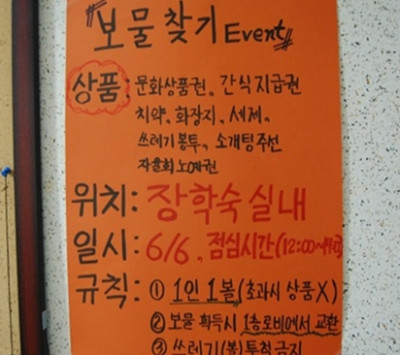 "보물찾기 Event"
상품: 문화상품권, 간식지급권
치약, 화장지, 세제,
쓰레기봉투, 소개팅주선
자율회 노예권
위치: 장학숙 실내
일시: 6/6, 점심시간(12:00~
규칙: ① 1인 1봄(초과시 상품X)
② 보물 획득시 1층로비에서 교환
③ 쓰레기(봄) 투척금지